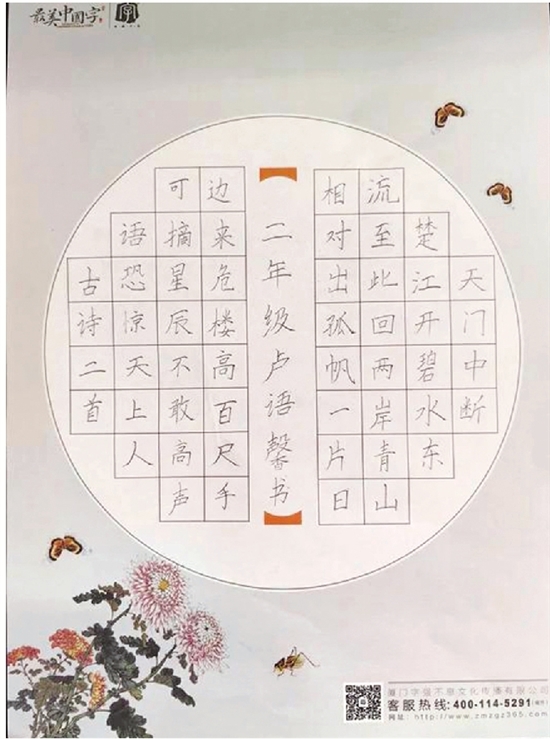 最美中国字
字
天门中断
楚江开碧水东
流至此回两岸青山
相对出孤帆一片日
二年级卢语馨书
边来危楼高百尺手
可摘星辰不敢高声
语恐惊天上人
古诗二首
厦门字强不息文化传播有限公司
客服热线:400-114-5291
网址:http://www.zmzgz365.com